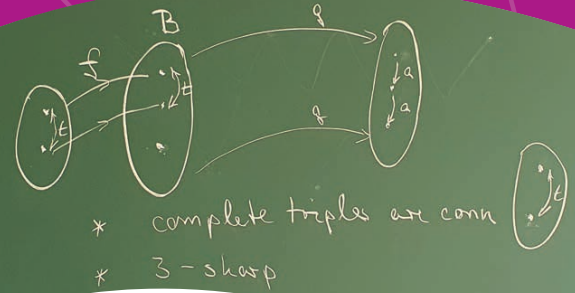 B
f
g
t
t
a
a
g
t
* complete triples are conn
* 3-sharp